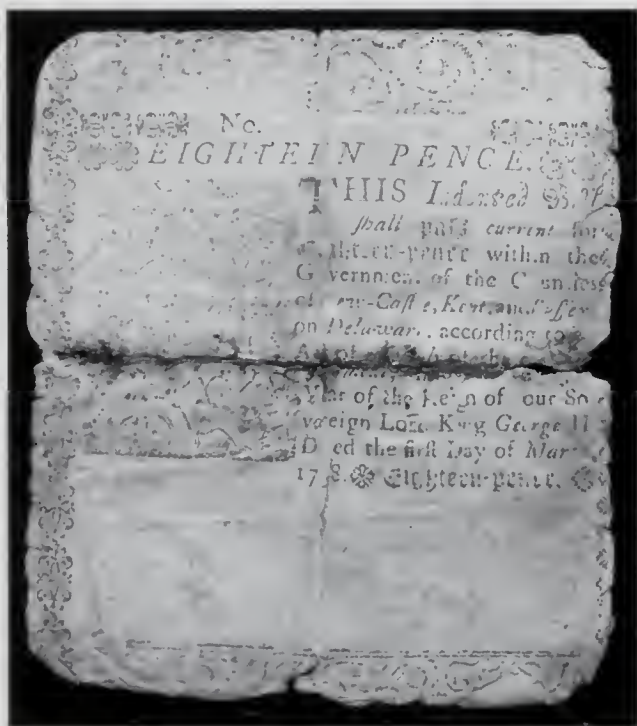 No.
EIGHTEEN PENCE.
THIS Indented Bill
ſhall paſs current for
Eighteen-pence within the
Government of the Counties
of New-Caſtle, Kent, and Suſſex
on Delaware, according to
Year of the Reign of our So
vereign Lord King George II
Dated the firſt Day of Mar
Eighteen-pence.